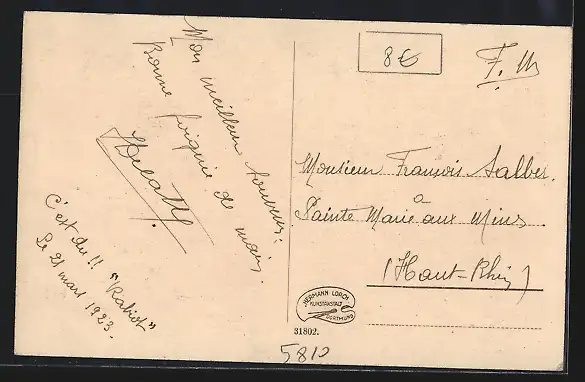 Mon meilleur souvenir.
Bonne poignée de main.
C'est du !! "Rabiot"
Le 21 mars 1923.
8€
F. M
Monsieur François Salber.
à
Sainte Marie aux Mines
(Haut-Rhin)
HERMANN LORCH
KUNSTANSTALT
DORTMUND
31802.
5810